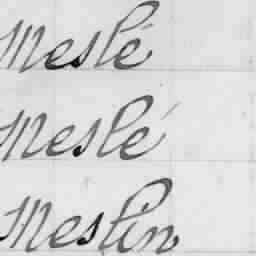 Meslé
Meslé
Meslin